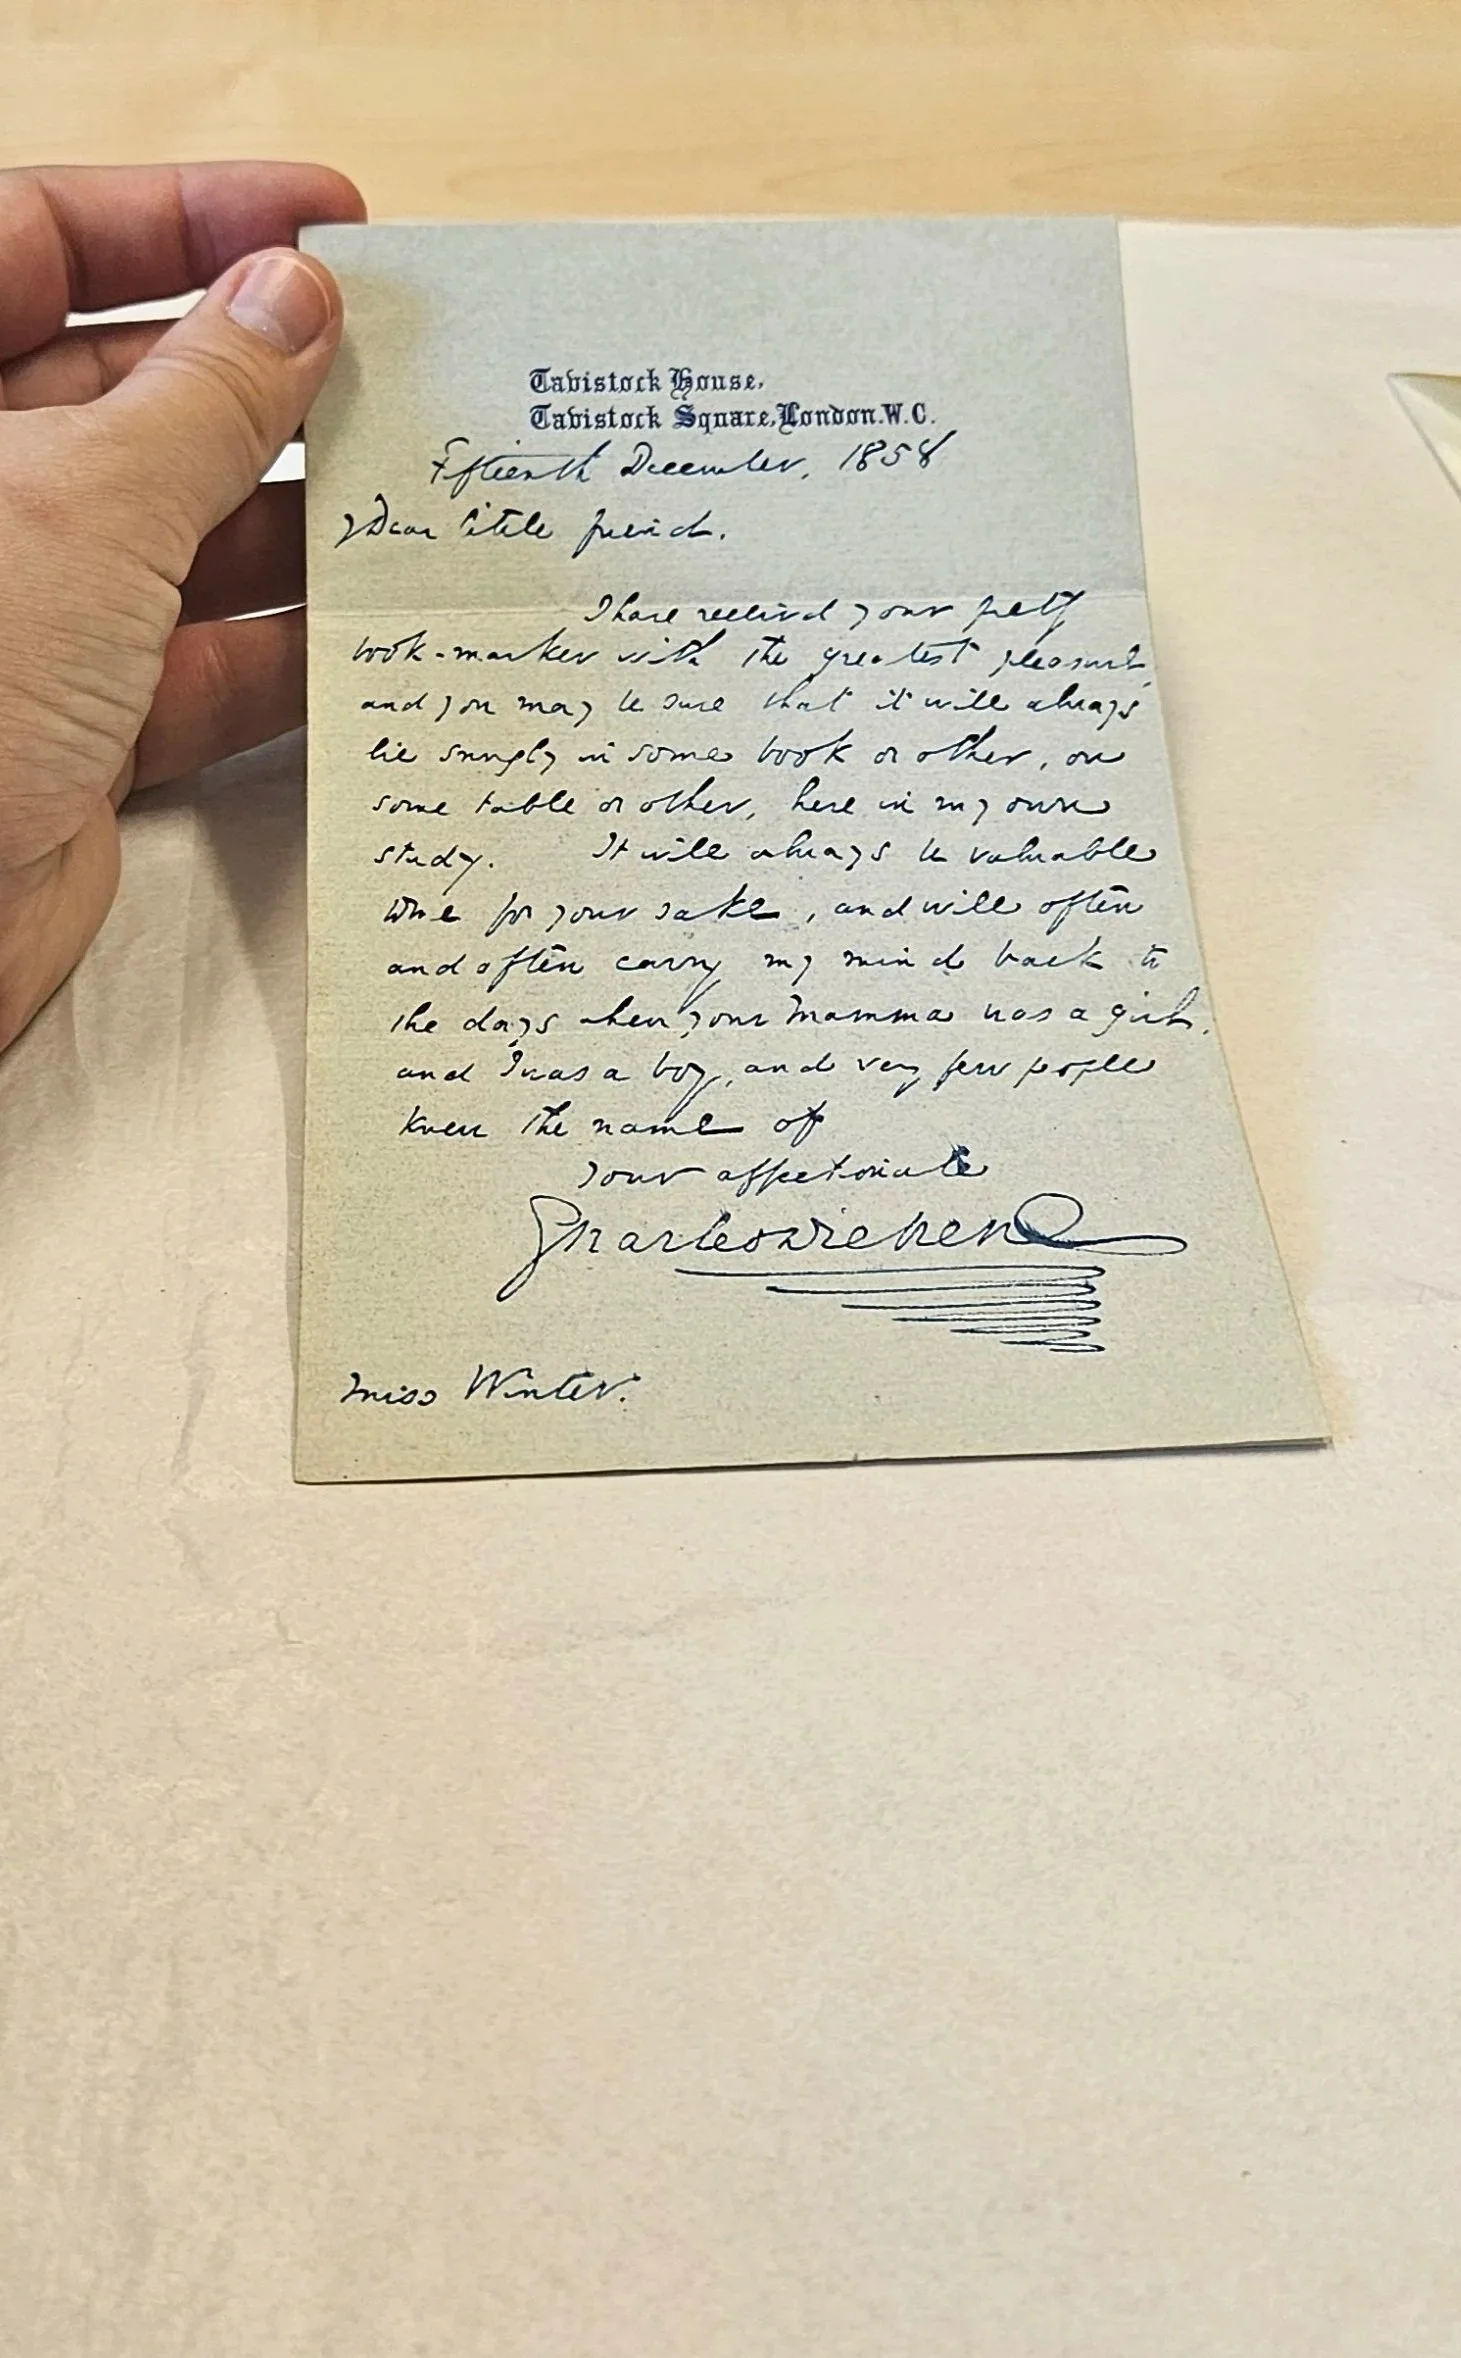 Tavistock House,
Tavistock Square, London. W.C.
Fifteenth December, 1858
My Dear little friend.
I have received your pretty
book-marker with the greatest pleasure,
and you may be sure that it will always
lie snugly in some book or other, on
some table or other, here in my own
study. It will always be valuable
to me for your sake, and will often
and often carry my mind back to
the days when your Mamma was a girl,
and I was a boy, and very few people
knew the name of
Your affectionate
Charles Dickens
Miss Winter.